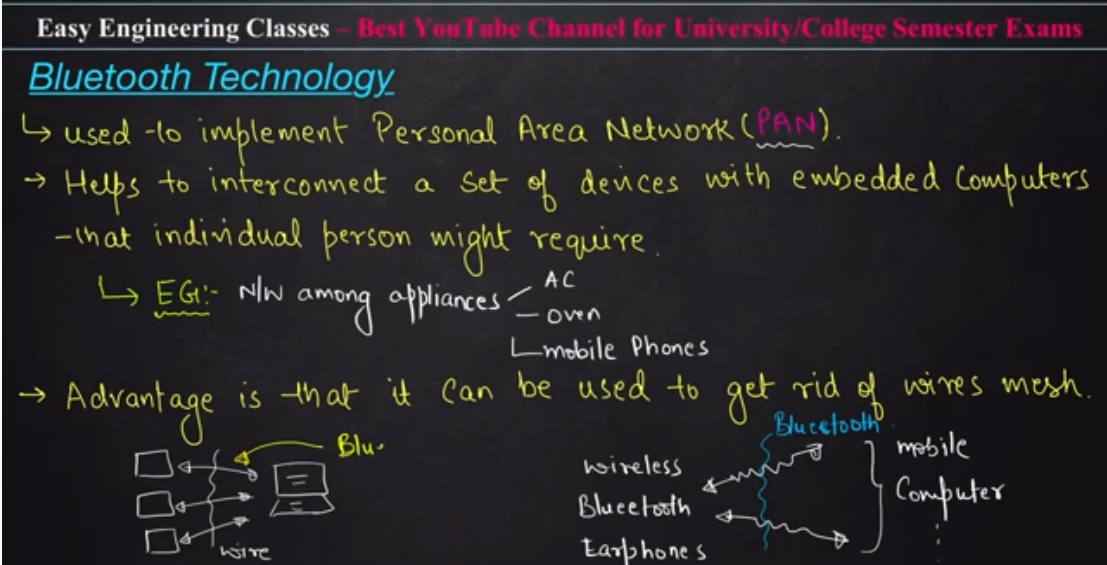 Easy Engineering Classes – Best YouTube Channel for University/College Semester Exams
Bluetooth Technology
↳ used to implement Personal Area Network (PAN).
→ Helps to interconnect a set of devices with embedded Computers
that individual person might require.
↳ EG:- N/W among appliances
AC
– oven
mobile Phones
→ Advantage is that it can be used to get rid of wires mesh.
Blu.
wire
Bluetooth
wireless
Blueetooth
Earphones
mobile
Computer